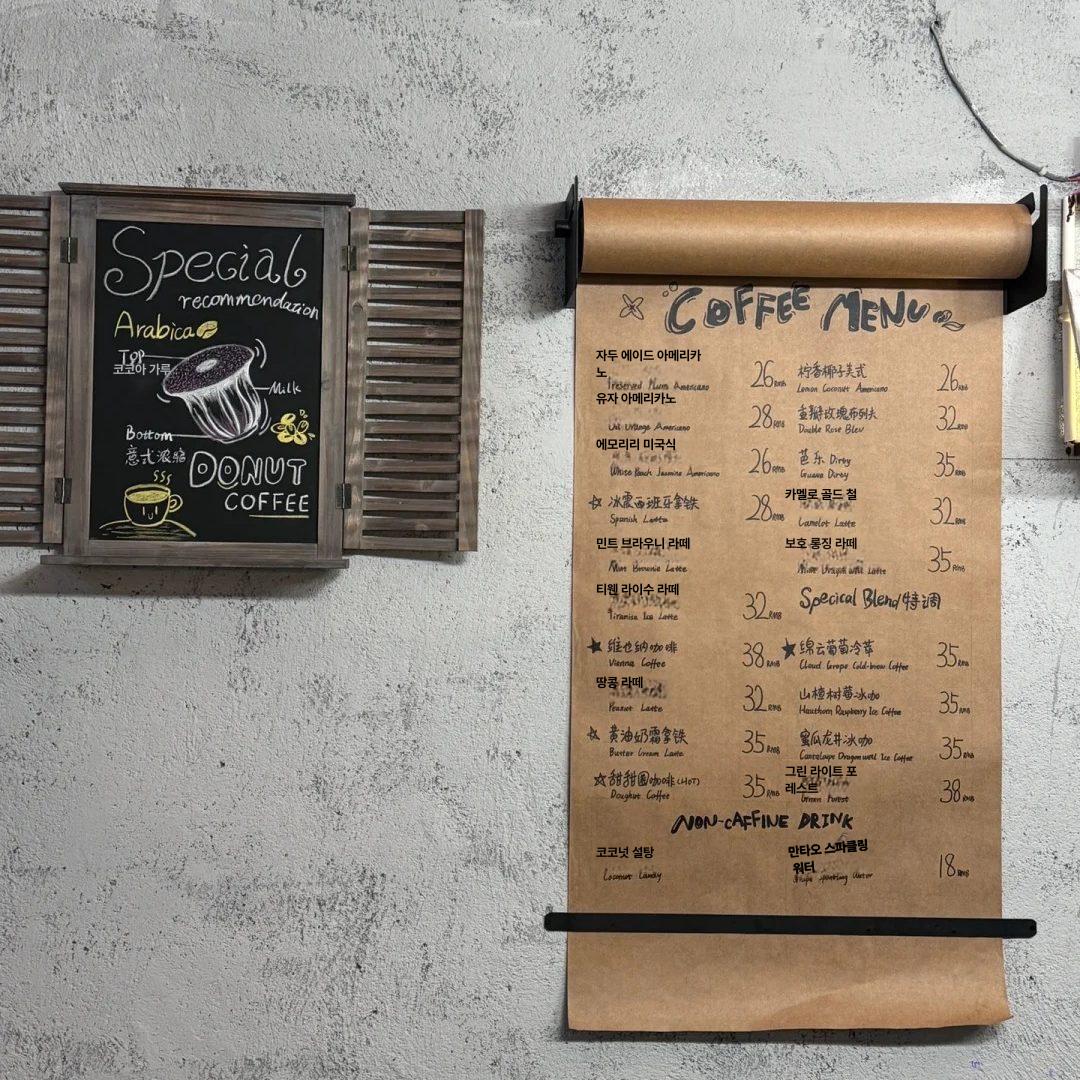 Special
recommendation
Arabica
Top
코코아 가루
Milk
Bottom
意式浓缩
DONUT
COFFEE
COFFEE MENU
자두 에이드 아메리카
노
Preserved Plum Americano
26RMB
유자 아메리카노
Americano
28RMB
에모리리 미국식
White Peach Jasmine Americano
26RMB
冰震西班牙拿铁
Spanish Latte
28RMB
민트 브라우니 라떼
Mint Brownie Latte
티웬 라이수 라떼
Tiramisu Ice Latte
32RMB
维也纳咖啡
Vienna Coffee
38RMB
땅콩 라떼
Peanut Latte
32RMB
黄油奶霜拿铁
Butter Cream Latte
35RMB
甜甜圈咖啡(HOT)
Doughnut Coffee
35RMB
柠香椰子美式
Lemon Coconut Americano
26RMB
重瓣玫瑰布列夫
Double Rose Blev
32RMB
芭乐 Dirty
Guava Dirty
35RMB
카멜로 골드 철
Camelot Latte
32RMB
보호 롱징 라떼
Latte
35RMB
Specical Blend 特调
绵云葡萄冷萃
Cloud Grape Cold-brew Coffee
35RMB
山楂树莓冰咖
Hawthorn Raspberry Ice Coffee
35RMB
蜜瓜龙井冰咖
Cantaloupe Dragon well Ice Coffee
35RMB
그린 라이트 포
레스트
Green Forest
38RMB
NON-CAFFINE DRINK
코코넛 설탕
Coconut Candy
만타오 스파클링
워터
Sparkling Water
18RMB